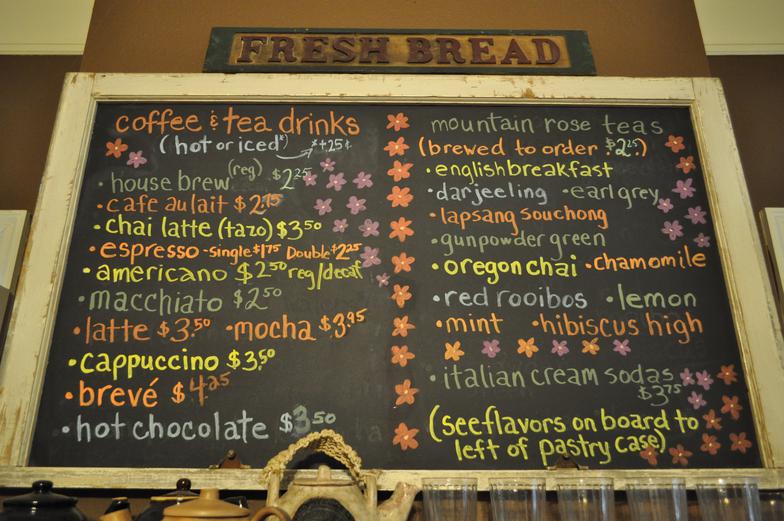 FRESH BREAD
coffee & tea drinks
(hot or iced*) *+25¢
• house brew (reg) $2.25
• cafe au lait $2.75
• chai latte (tazo) $3.50
• espresso - single $1.75 Double $2.25
• americano $2.50 reg/decaf
• macchiato $2.50
• latte $3.50 • mocha $3.95
• cappuccino $3.50
• brevé $4.25
• hot chocolate $3.50
mountain rose teas
(brewed to order $2.25)
• english breakfast
• darjeeling • earl grey
• lapsang souchong
• gunpowder green
• oregon chai • chamomile
• red rooibos • lemon
• mint • hibiscus high
• italian cream sodas
$3.75
(see flavors on board to
left of pastry case)